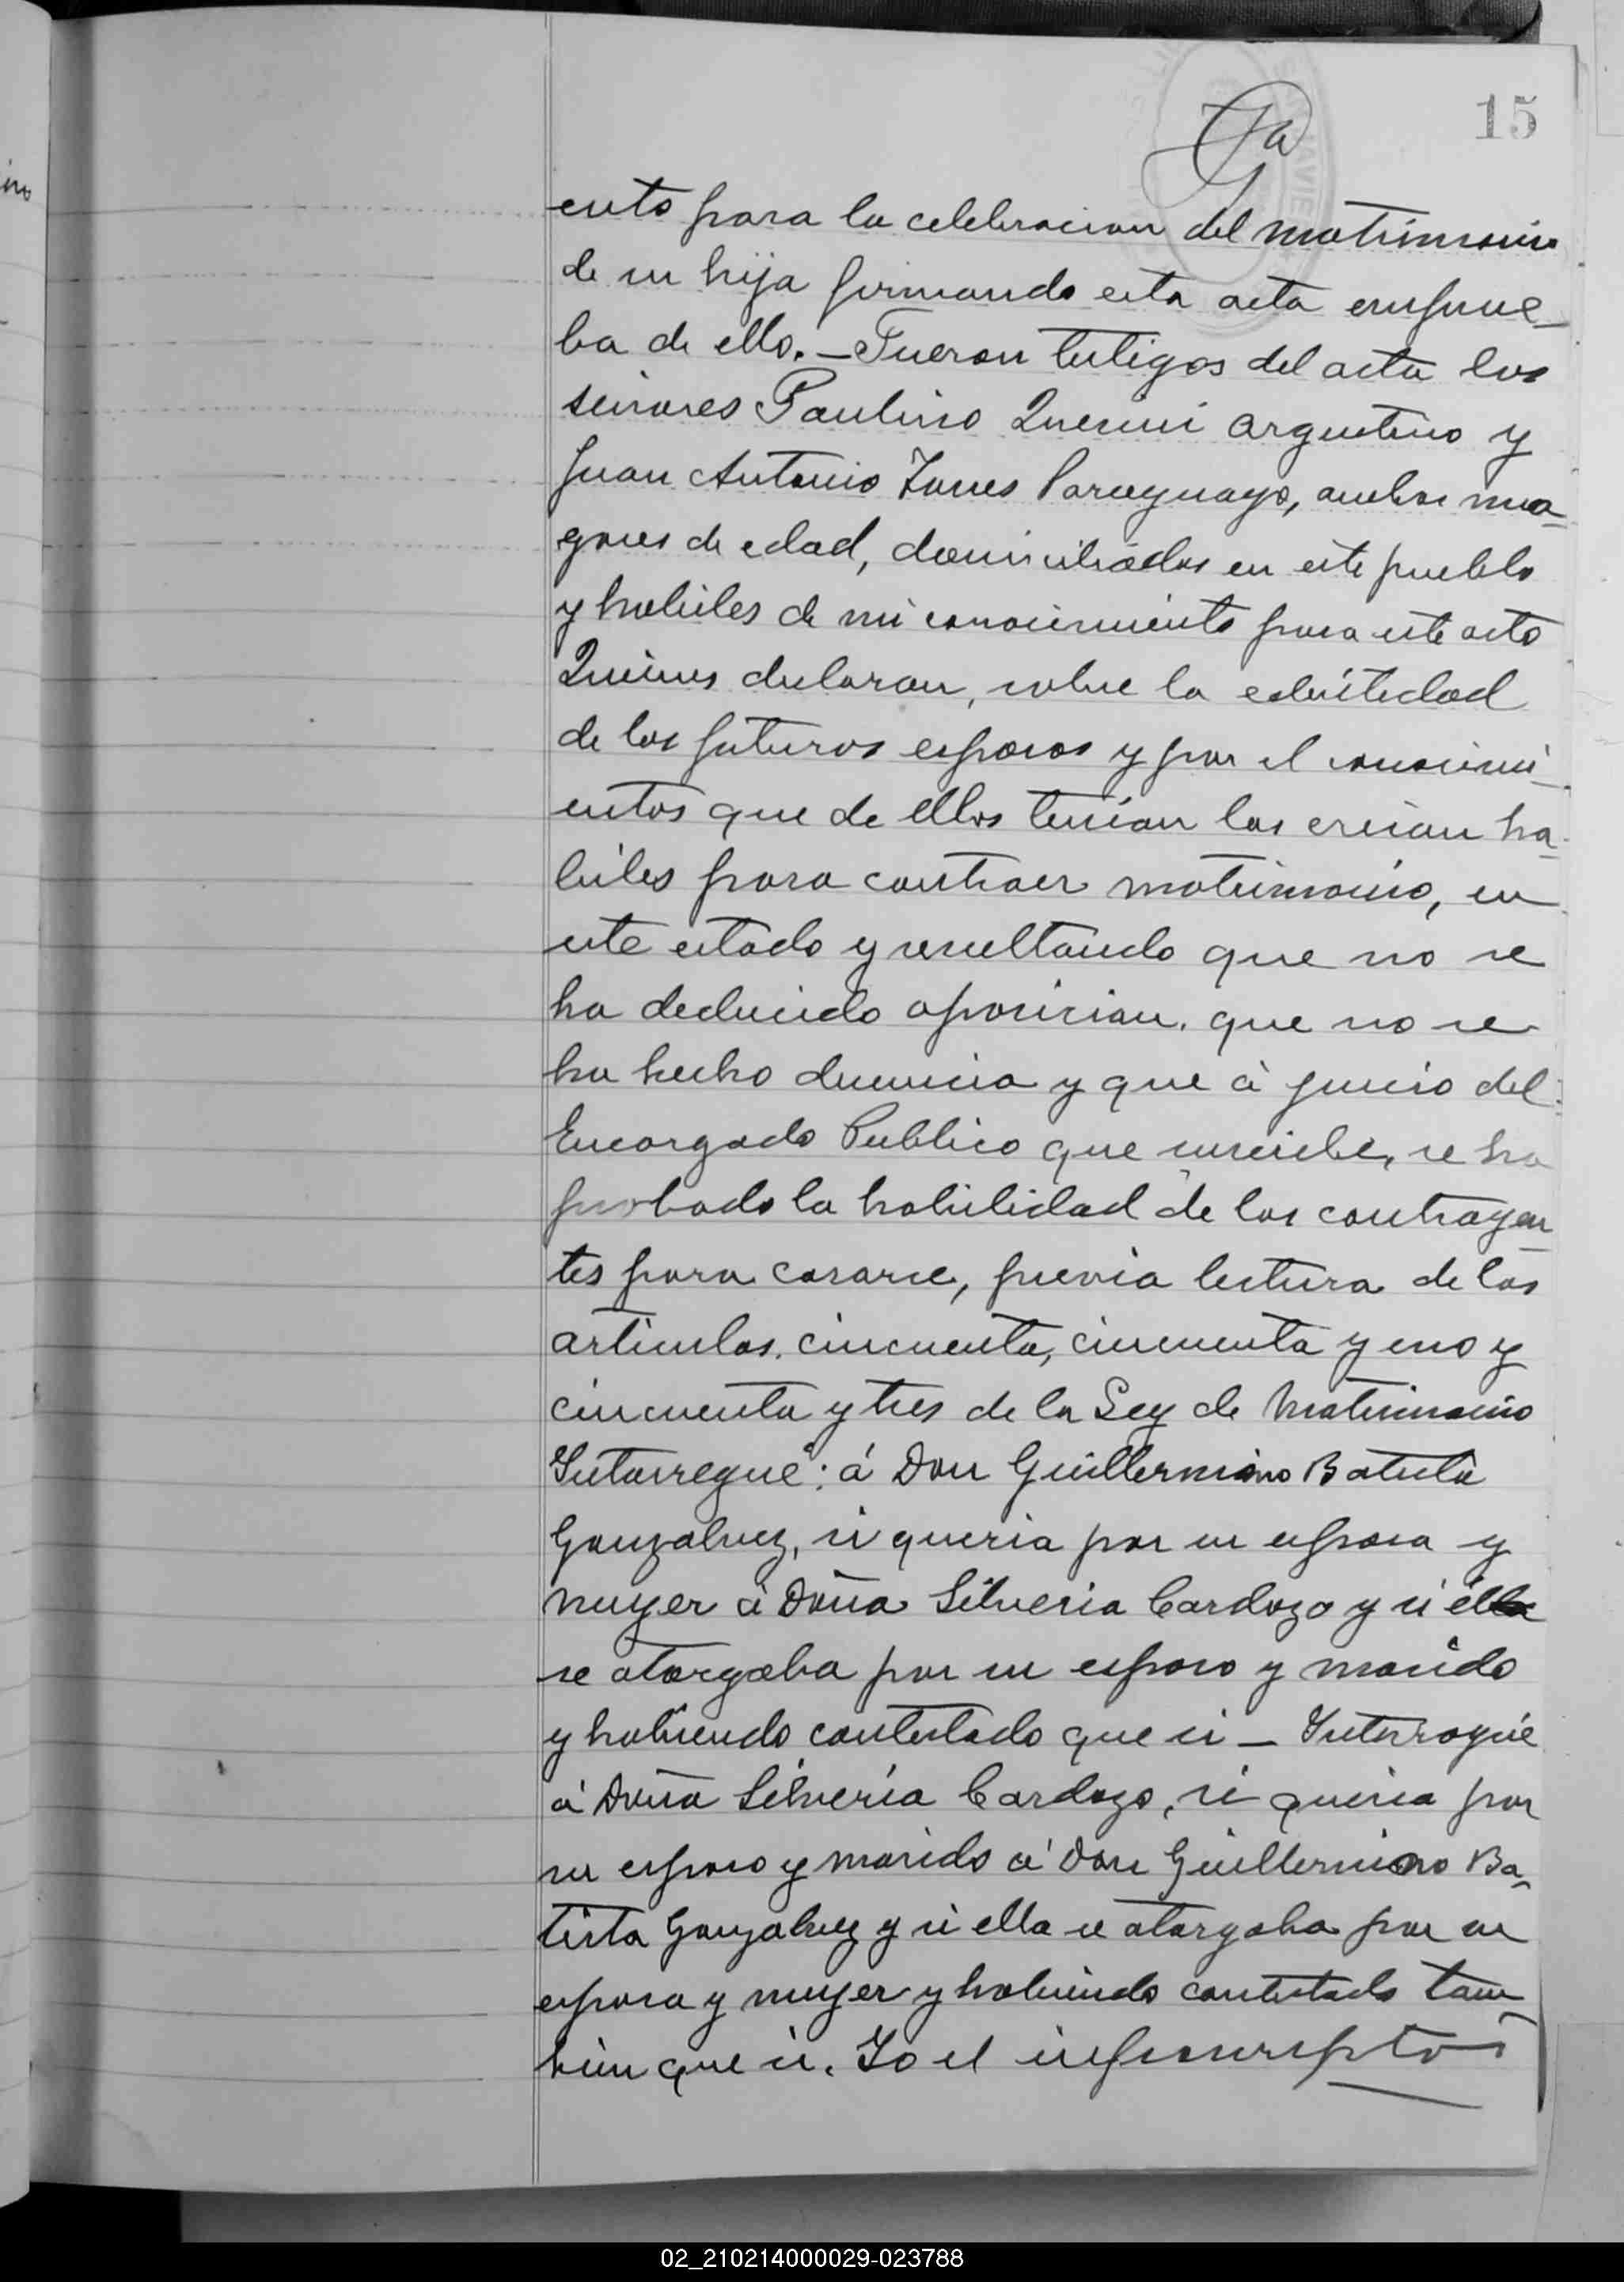 15
ento para la celebracion del matrimonio
de su hija firmando esta acta en prue-
ba de ello. - Fueron testigos del acta los
señores Paulino argentino y
Juan Antonio Torres Paraguayo, ambos ma-
yores de edad, domiciliados en este pueblo
y habiles de mi conocimiento para este acto
Quienes declaran, sobre la
de los futuros esposos y por el conocimi-
entos que de ellos tenian los creian ha-
biles para contraer matrimonio, en
este estado y resultando que no se
ha deducido oposicion. que no se
ha hecho denuncia y que á juicio del
Encargado Publico que suscribe, se ha
probado la habilidad de los contrayen
tes para casarse, previa lectura de los
articulos. cincuenta, cincuenta y uno y
cincuenta y tres de la Ley de Matrimonio
Intorregué: á Don Guillermino Batista
Gonzalvez, si queria por su esposa y
muyer á Doña Silveria Cardozo y si él
se otorgaba por su esposo y marido
y habiendo contestado que si - Interrogué
á Doña Silveria Cardozo, si queria por
su esposo y marido á Don Guillermino Ba-
tista Gonzalvez y si ella se otorgaba por su
esposa y muyer y habiendo contestado tam-
bien que si. Yo el infrascripto
02_210214000029-023788